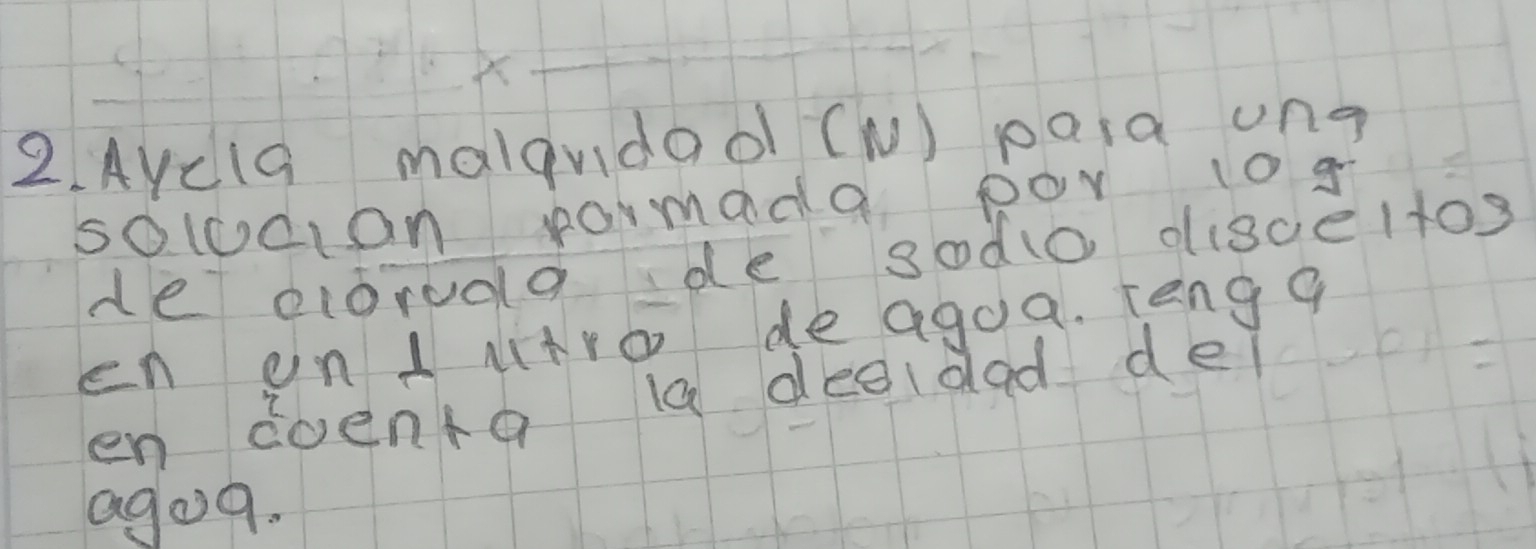 2. Aycla malquidad (N) para una
solucion formada por 10 g
de cloruda de sodio disceltos
en un 1 litro de agua. Tenga
en cuenta la decidad del
agua.